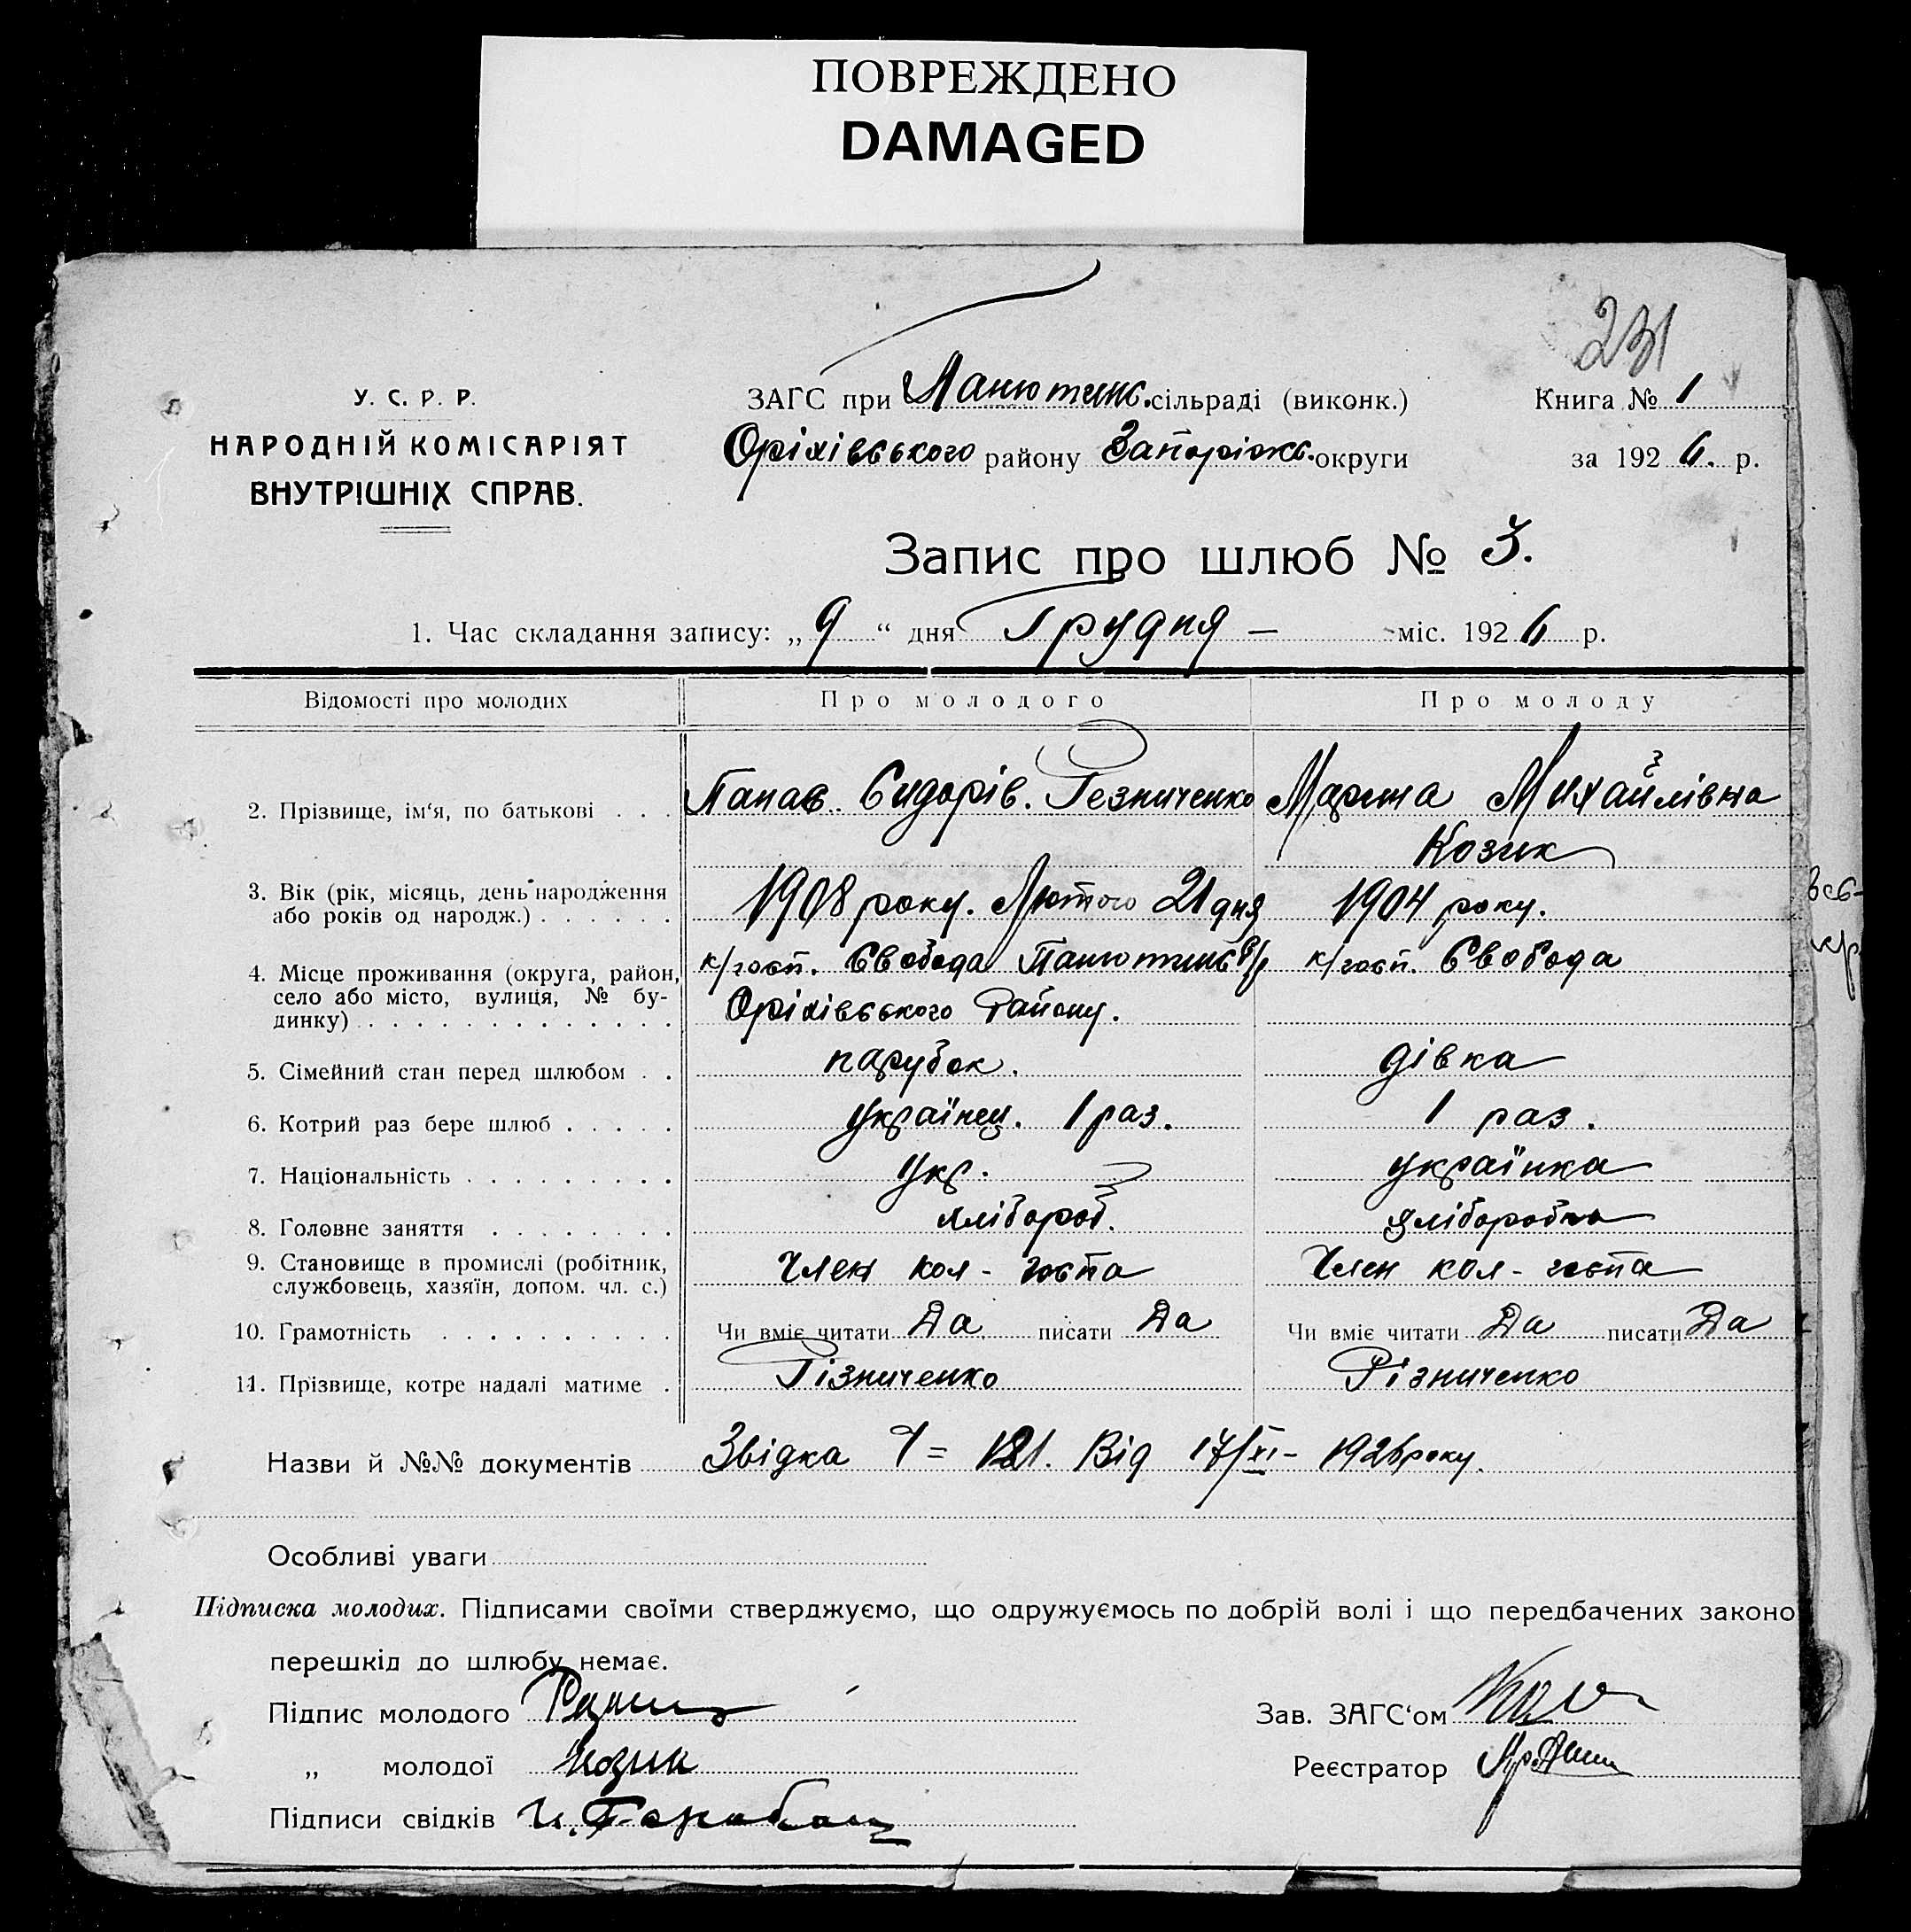 ПОВРЕЖДЕНО
DAMAGED
231
У. С. Р. Р.
НАРОДНІЙ КОМІСАРІЯТ
ВНУТРІШНІХ СПРАВ.
ЗАГС при Панютинс. сільраді (виконк.)
Оріхівського району Запоріжс. округи
Книга № 1
за 1926. р.
Запис про шлюб № 3.
1. Час складання запису: „9“ дня Грудня — міс. 1926 р.
Відомості про молодих Про молодого Про молоду
2. Прізвище, ім‘я, по батькові . . . Панас Сидорів. Резниченко Марина Михайлівна
Козик
3. Вік (рік, місяць, день народження
або років од народж.) . . . . . . 1908 року. Лютого 21 дня 1904 року.
4. Місце проживання (округа, район,
село або місто, вулиця, № бу-
динку) . . . . . . . . . . . . . .
к/госп. Свобода Панютинс с/р к/госп. Свобода
Оріхівського Району.
5. Сімейний стан перед шлюбом . . парубок. дівка
6. Котрий раз бере шлюб . . . . . українец. 1 раз. 1 раз.
7. Національність . . . . . . . . . укр. українка
8. Головне заняття . . . . . . . . хлібороб. хліборобка
9. Становище в промислі (робітник,
службовець, хазяїн, допом. чл. с.) Член кол-госпа Член кол-госпа
10. Грамотність . . . . . . . . . . Чи вміє читати Да писати Да Чи вміє читати Да писати Да
11. Прізвище, котре надалі матиме . Різниченко Різниченко
Назви й №№ документів Звідка 121. Від 17/XI- 1926 року.
Особливі уваги
Підписка молодих. Підписами своїми стверджуємо, що одружуємось по добрій волі і що передбачених законо
перешкід до шлюбу немає.
Підпис молодого
Зав. ЗАГС‘ом
„ молодої Козик
Реєстратор
Підписи свідків